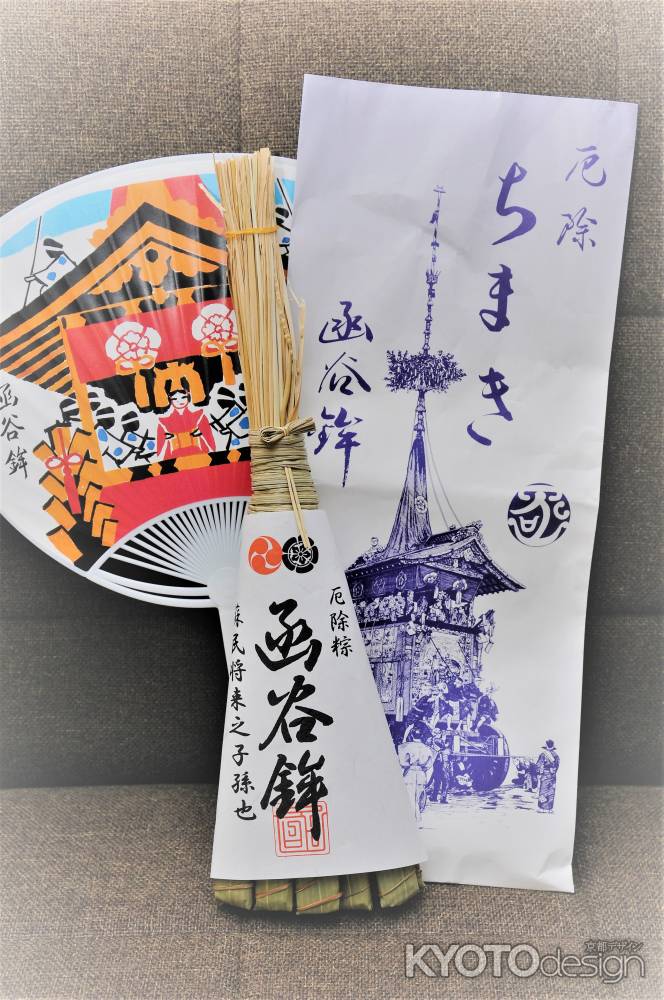 厄除
ちまき
函谷鉾
函谷鉾
厄除粽
函谷鉾
蘇民将来之子孫也
京都デザイン
KYOTOdesign